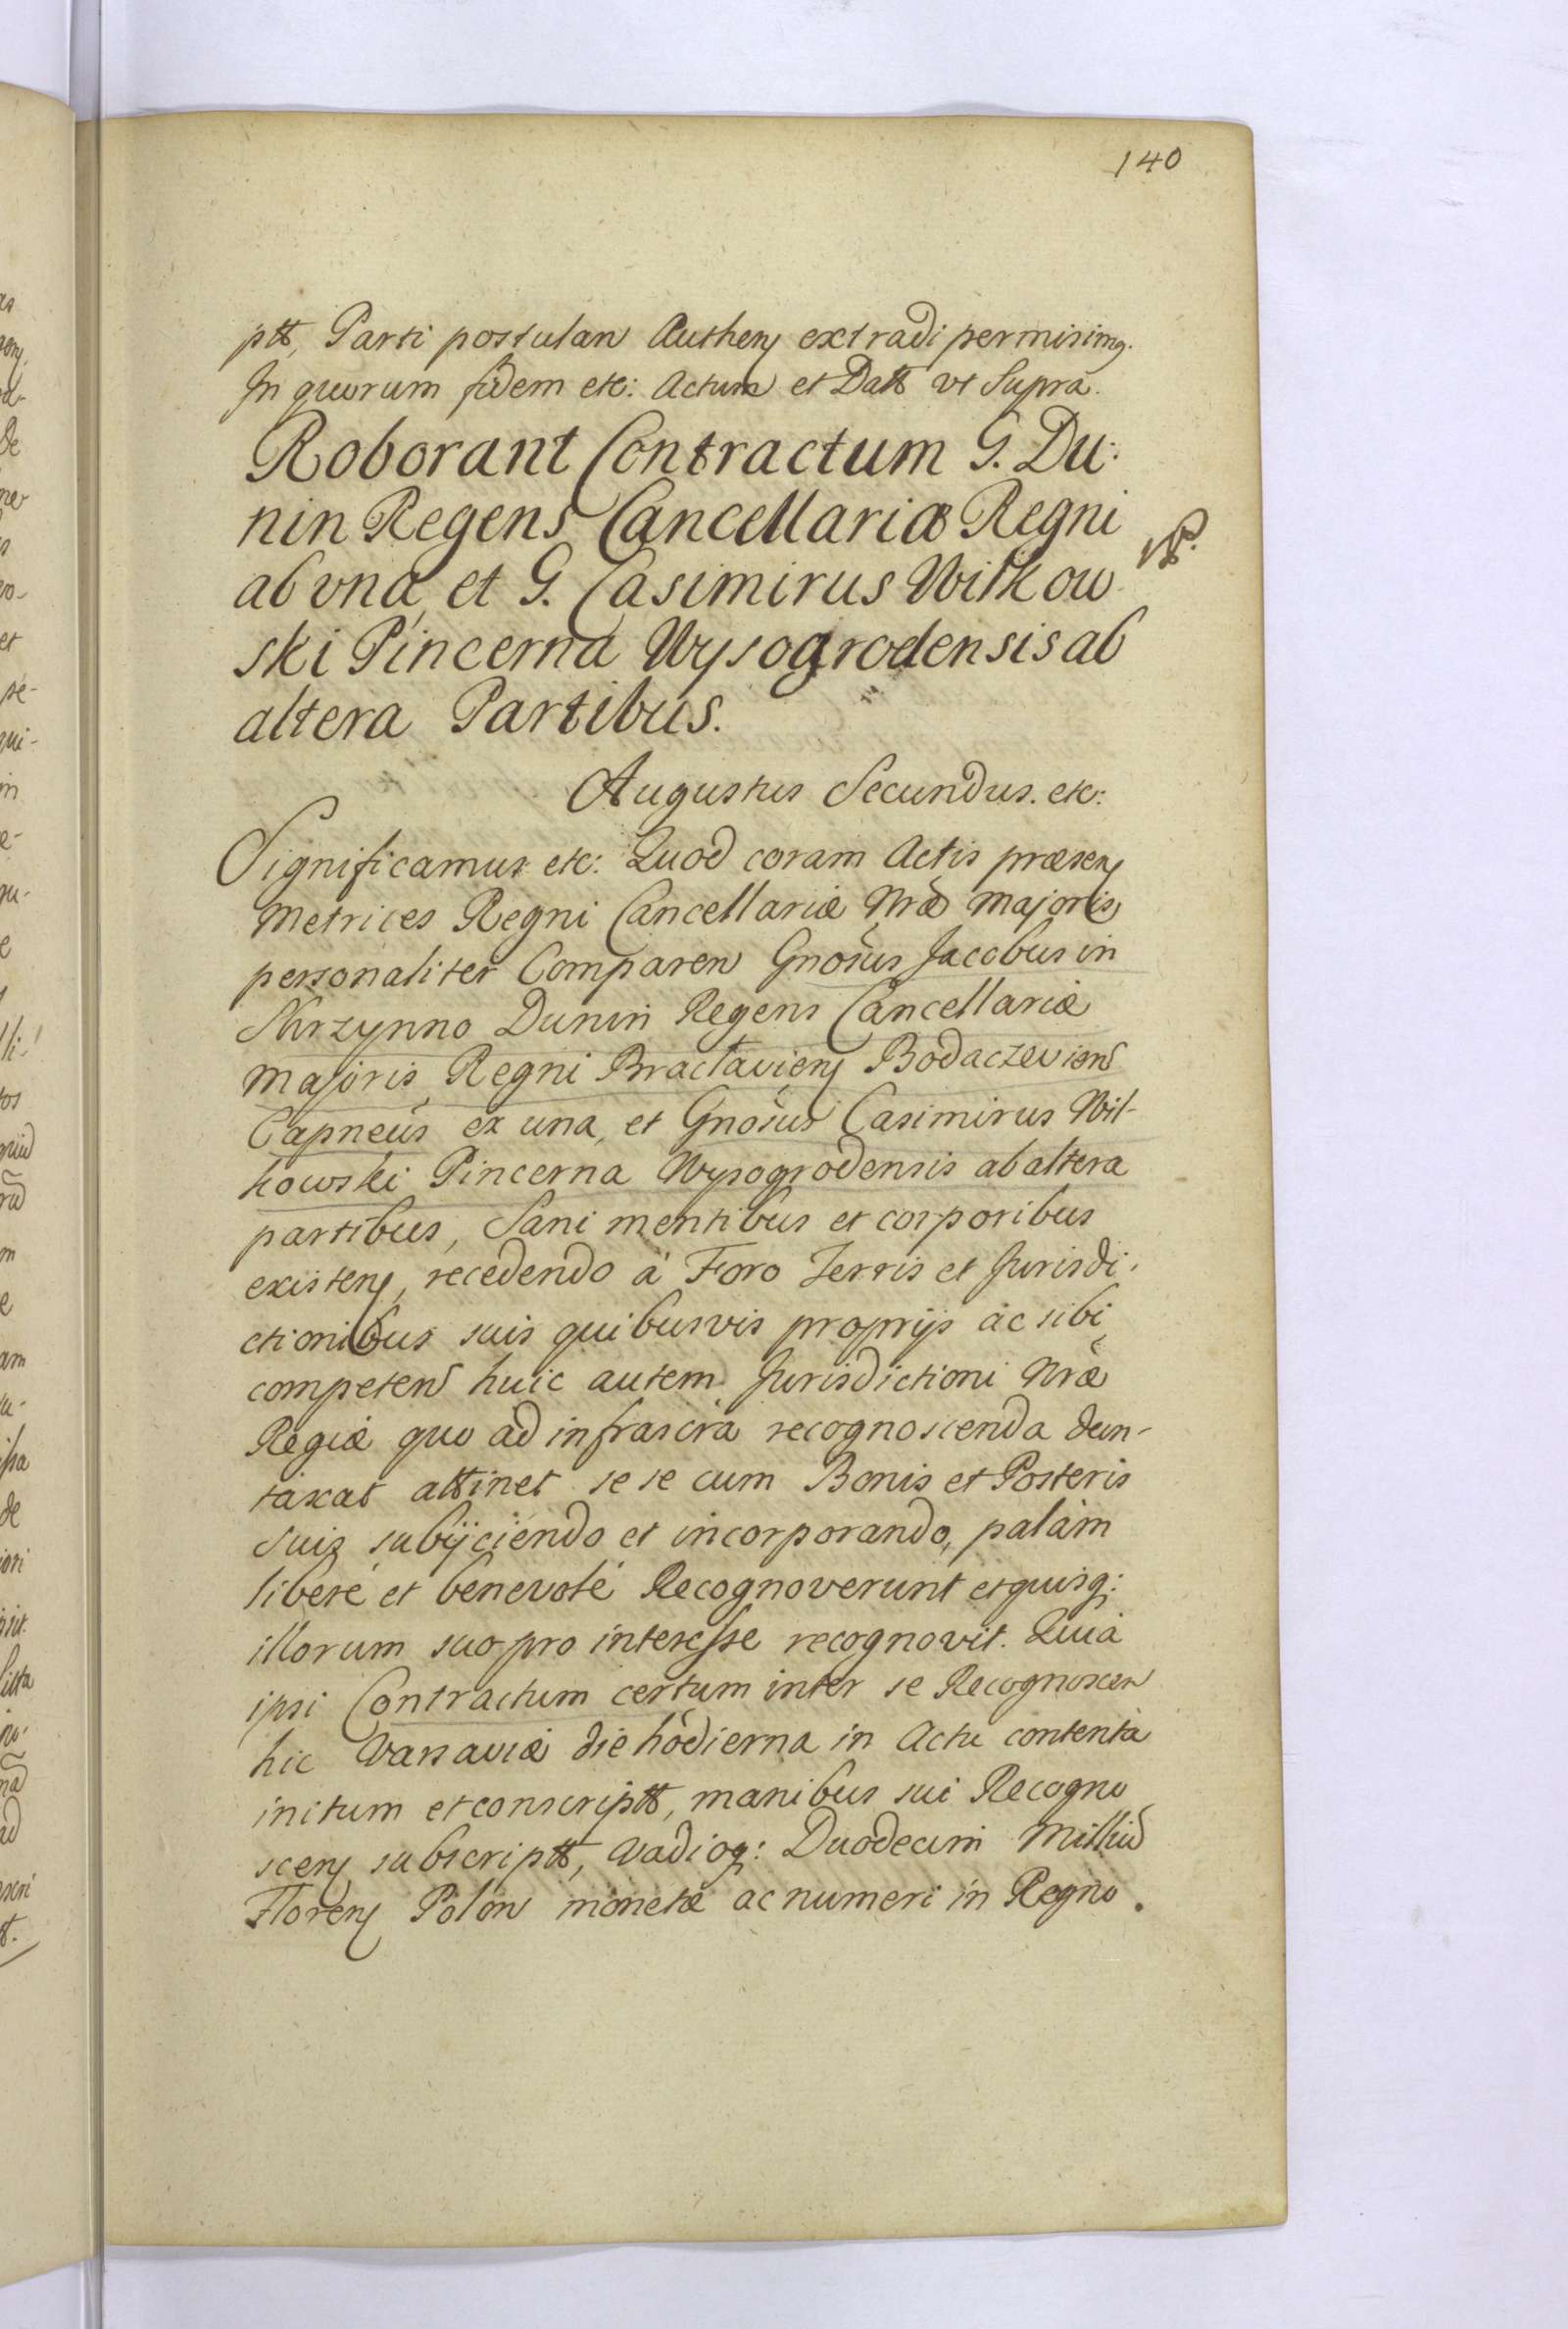 140
ptt, Parti postulan Authen extradi permisimq.
In quorum fidem etc: Actum et Datt vt Supra.
Roborant Contractum G. Du:
nin Regens Cancellariæ Regni
ab vna et G. Casimirus Wilkow
ski Pincerna Wysogrodensis ab
altera Partibus.
Augustus Secundus. etc:
Significamus etc: Quod coram Actis præsen
Metrices Regni Cancellariæ Nræ Majoris
personaliter Comparen Gnosus Jacobus in
Skrzynno Dunin Regens Cancellariæ
Majoris Regni Braclavien Bodaczevien
Capneus ex una, et Gnosus Casimirus Wil-
kowski Pincerna Wysogrodensis ab altera
partibus, Sani mentibus et corporibus
existen, recedendo à Foro Terris et Jurisdi.
ctionibus suis quibusvis proprijs ac sibi
competen huic autem Jurisdictioni Nræ
Regiæ quo ad infrascra recognoscenda dun-
taxat attinet se se cum Bonis et Posteris
Suis subijciendo et incorporando, palàm
liberé et benevolé Recognoverunt et quisq:
illorum suo pro interesse recognovit. Quia
ipsi Contractum certum inter se Recognoscen
hic Varsaviæ die hodierna in Actu contenta
initum et conscriptt, manibus sui Recogno
scen subscriptt, vadioq: Duodecim Milliu
Floren Polon monetæ ac numeri in Regno.